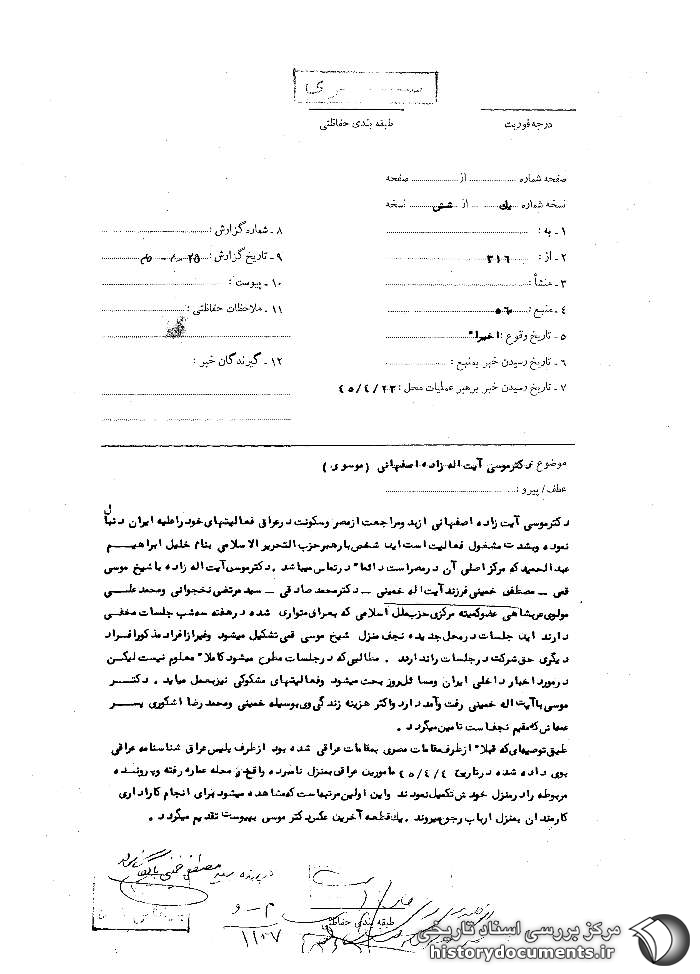 سری
طبقه بندی حفاظتی
درجه فوریت
صفحه شماره از صفحه
نسخه شماره یک از شش نسخه
۱ - به :
۲ - از : ۳۱۶
۳ - منشأ :
۴ - منبع : ۵۶
۵ - تاریخ وقوع : اخیرا"
۶ - تاریخ رسیدن خبر بمنبع :
۷ - تاریخ رسیدن خبر برهبر عملیات محل : ۴۵/۴/۲۳
۸ - شماره گزارش :
۹ - تاریخ گزارش :
۱۰ - پیوست :
۱۱ - ملاحظات حفاظتی :
۱۲ - گیرندگان خبر :
موضوع دکتر موسی آیت اله زاده اصفهانی (موسوی)
عطف / پیرو :
دکتر موسی آیت زاده اصفهانی از بد و مراجعت از مصر و سکونت در عراق فعالیتهای خود را علیه ایران دنبال
نموده و بشدت مشغول فعالیت است این شخص با رهبر حزب التحریر الاسلامی بنام خلیل ابراهیم
عبدالحمید که مرکز اصلی آن در مصر است دائما" در تماس میباشد . دکتر موسی آیت اله زاده با شیخ موسی
قمی – مصطفی خمینی فرزند آیت اله خمینی – دکتر محمد صادقی – سید مرتضی نخجوانی و محمد علی
مولوی عربشاهی عضو کمیته مرکزی حزب ملل اسلامی که بعراق متواری شده در هفته سه شب جلسات مخفی
دارند این جلسات در محل جدیده نجف منزل شیخ موسی قمی تشکیل میشود و غیر از افراد مذکور افراد
دیگری حق شرکت در جلسات را ندارند . مطالبی که در جلسات مطرح میشود کاملا" معلوم نیست لیکن
در مورد اخبار داخلی ایران و مسائل روز بحث میشود و فعالیتهای مشکوکی نیز بعمل میاید . دکتر
موسی با آیت اله خمینی رفت و آمد دارد و اکثر هزینه زندگی وی بوسیله خمینی و محمد رضا اشکوری پسر
عمه اش که مقیم نجف است تامین میگردد .
طبق توصیه ای که قبلا" از طرف مقامات مصری بمقامات عراقی شده بود از طرف پلیس عراق شناسنامه عراقی
بوی داده شده در تاریخ ۴۵/۴/۴ مامورین عراقی بمنزل نامبرده واقع در محله عماره رفته و پرونده
مربوطه را در منزل خودش تکمیل نمودند و این اولین مرتبه است که مشاهده میشود برای انجام کار اداری
کارمندان بمنزل ارباب رجوع میروند . یک قطعه آخرین عکس دکتر موسی بپیوست تقدیم میگردد .
در پرونده سید مصطفی خمینی بایگانی
طبقه بندی حفاظتی
۱۱/۷
مرکز بررسی اسناد تاریخی
historydocuments.ir